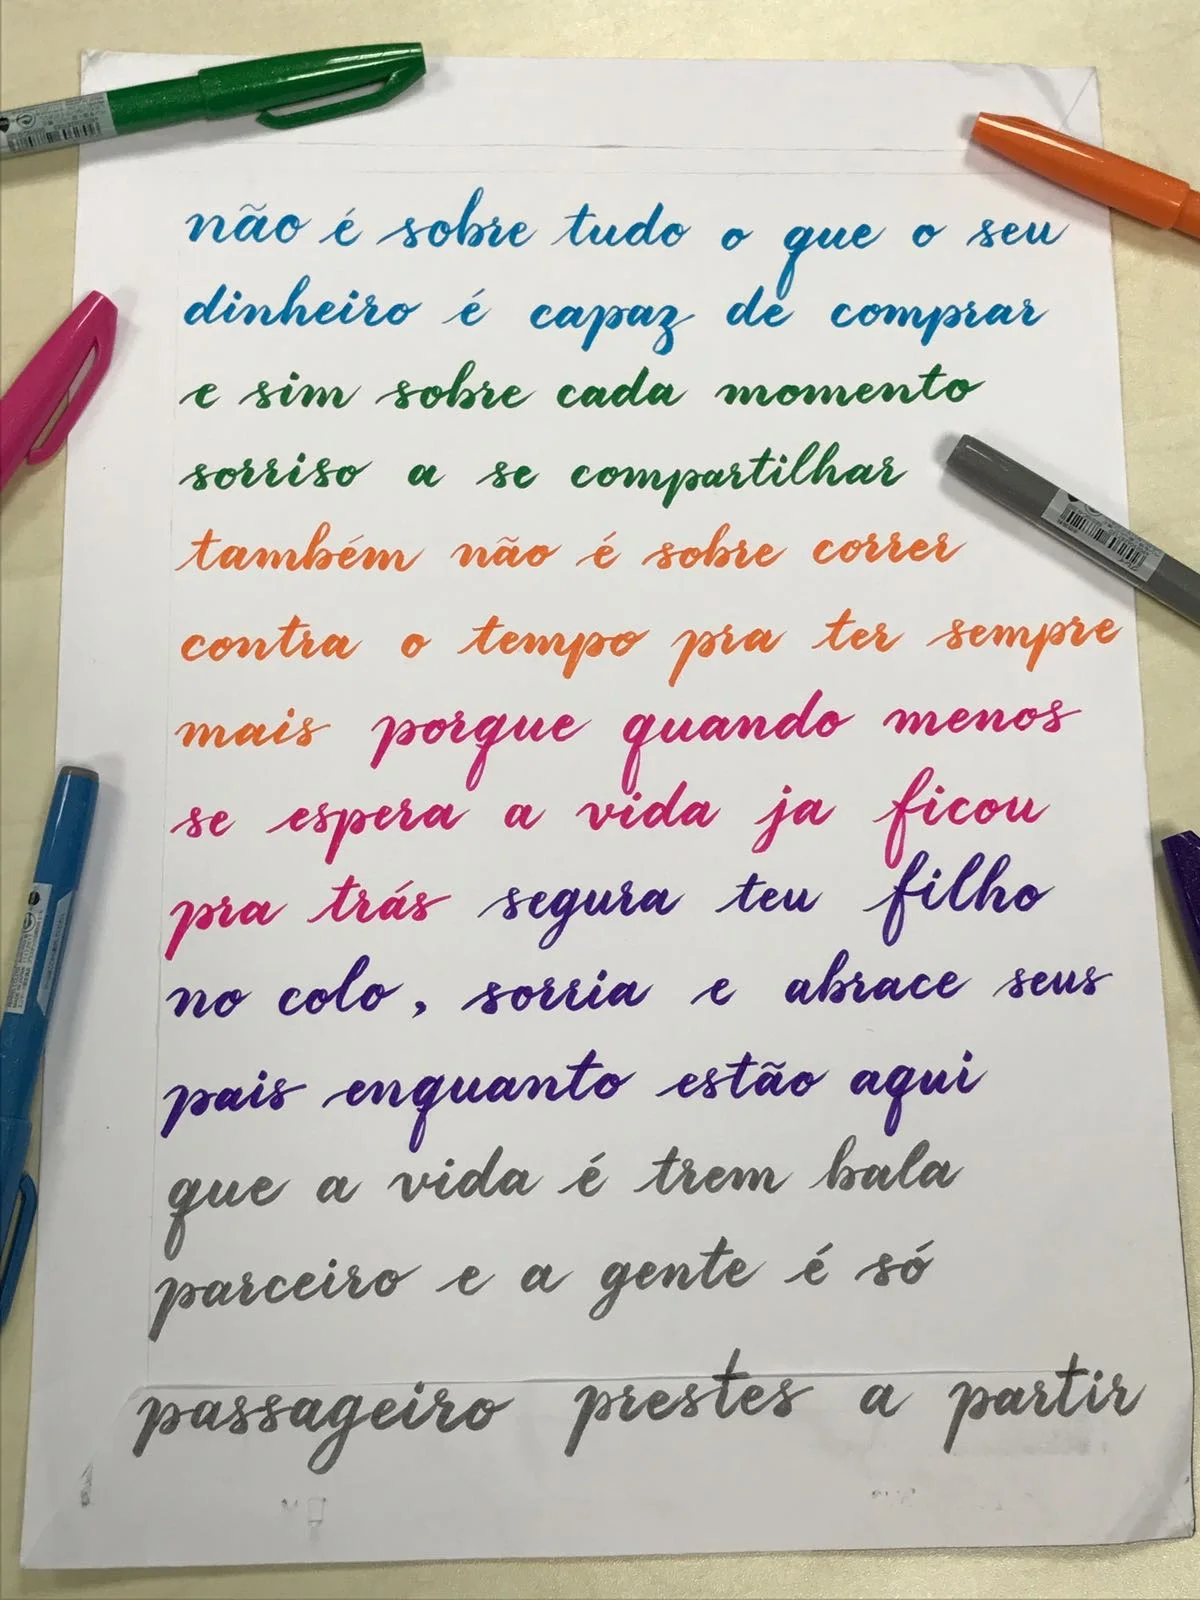 não é sobre tudo o que o seu
dinheiro é capaz de comprar
e sim sobre cada momento
sorriso a se compartilhar
também não é sobre correr
contra o tempo pra ter sempre
mais porque quando menos
se espera a vida ja ficou
pra trás segura teu filho
no colo, sorria e abrace seus
pais enquanto estão aqui
que a vida é trem bala
parceiro e a gente é só
passageiro prestes a partir